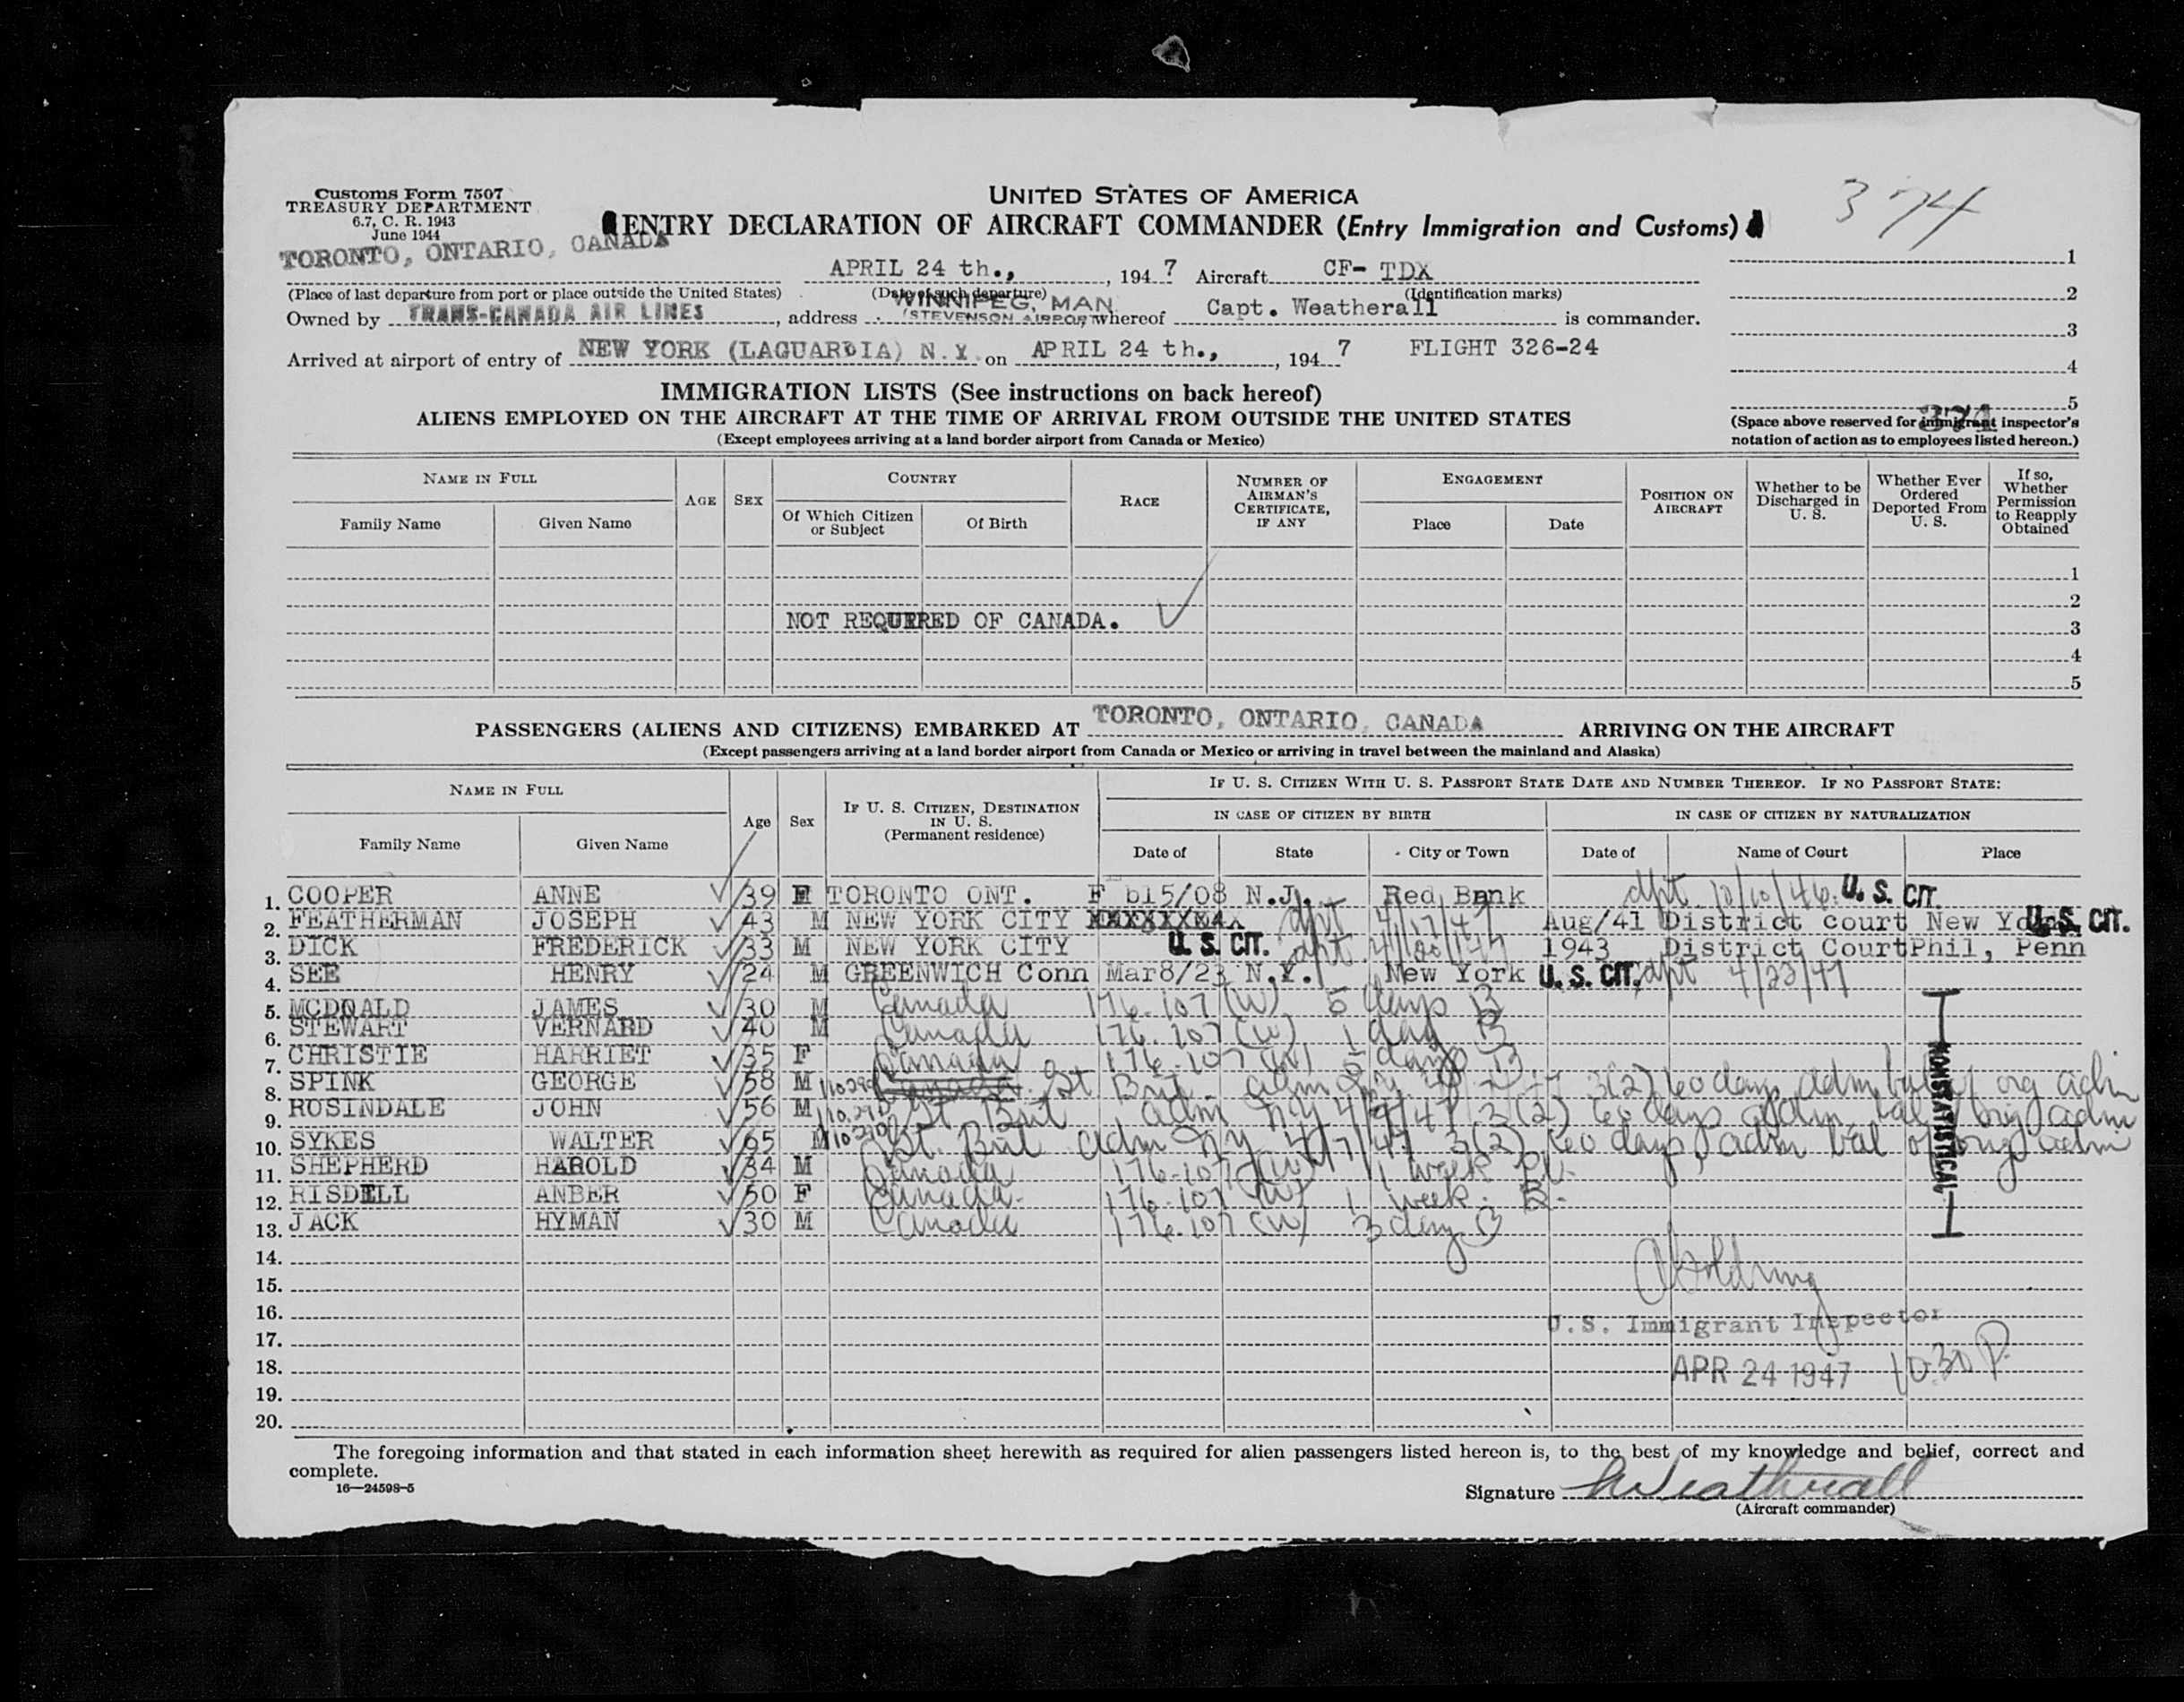 374
Customs Form 7507
TREASURY DEPARTMENT
6.7, C. R. 1943
June 1944
UNITED STATES OF AMERICA
ENTRY DECLARATION OF AIRCRAFT COMMANDER (Entry Immigration and Customs)
TORONTO, ONTARIO, CANADA APRIL 24 th., , 1947 Aircraft CF- TDX
(Place of last departure from port or place outside the United States) (Date of such departure) (Identification marks)
Owned by TRANS-CANADA AIR LINES, address WINNIPEG, MAN. (STEVENSON AIRPORT) whereof Capt. Weatherall is commander.
Arrived at airport of entry of NEW YORK (LAGUARDIA) N.Y. on APRIL 24 th., , 1947 FLIGHT 326-24
1
2
3
4
5
374
(Space above reserved for immigrant inspector's
notation of action as to employees listed hereon.)
IMMIGRATION LISTS (See instructions on back hereof)
ALIENS EMPLOYED ON THE AIRCRAFT AT THE TIME OF ARRIVAL FROM OUTSIDE THE UNITED STATES
(Except employees arriving at a land border airport from Canada or Mexico)
NAME IN FULL AGE SEX COUNTRY RACE NUMBER OF AIRMAN'S CERTIFICATE, IF ANY ENGAGEMENT POSITION ON AIRCRAFT Whether to be Discharged in U. S. Whether Ever Ordered Deported From U. S. If so, Whether Permission to Reapply Obtained
Family Name Given Name Of Which Citizen or Subject Of Birth Place Date
1
2
NOT REQUIRED OF CANADA. 3
4
5
PASSENGERS (ALIENS AND CITIZENS) EMBARKED AT TORONTO, ONTARIO, CANADA ARRIVING ON THE AIRCRAFT
(Except passengers arriving at a land border airport from Canada or Mexico or arriving in travel between the mainland and Alaska)
NAME IN FULL Age Sex IF U. S. CITIZEN, DESTINATION IN U. S. (Permanent residence) IF U. S. CITIZEN WITH U. S. PASSPORT STATE DATE AND NUMBER THEREOF. IF NO PASSPORT STATE:
IN CASE OF CITIZEN BY BIRTH IN CASE OF CITIZEN BY NATURALIZATION
Family Name Given Name Date of State City or Town Date of Name of Court Place
1. COOPER ANNE 39 F TORONTO ONT. F b15/08 N.J. Red Bank dpt 10/10/46 U. S. CIT.
2. FEATHERMAN JOSEPH 43 M NEW YORK CITY dpt 4/17/47 Aug/41 District court New York U. S. CIT.
3. DICK FREDERICK 33 M NEW YORK CITY U. S. CIT. dpt. 4/20/47 1943 District Court Phil, Penn
4. SEE HENRY 24 M GREENWICH Conn Mar8/23 N.Y. New York U. S. CIT. dpt 4/23/47
5. MCDONALD JAMES 30 M Canada 176.107 (W) 5 days B
6. STEWART VERNARD 40 M Canada 176.107 (W) 1 day B
7. CHRISTIE HARRIET 35 F Canada 176-107 (W) 5 days B
8. SPINK GEORGE 58 M Canada Gt Brit. adm 3(2) 60 days adm bal of org adm
9. ROSINDALE JOHN 56 M Gt Brit adm NY 4/9/47 3(2) 60 days adm bal of orig adm
10. SYKES WALTER 65 M Gt. Brit adm NY 4/7/47 3(2) 60 days adm bal of orig adm
11. SHEPHERD HAROLD 34 M Canada 176-107 (W) 1 week
12. RISDELL ANBER 50 F Canada 176.107 (W) 1 week. B.
13. JACK HYMAN 30 M Canada 176.107 (W) 3 days B
NONSTATISTICAL
14.
15.
16. U.S. Immigrant Inspector
17.
18. APR 24 1947 10:30 P
19.
20.
The foregoing information and that stated in each information sheet herewith as required for alien passengers listed hereon is, to the best of my knowledge and belief, correct and
complete.
16—24598-5
Signature Weatherall
(Aircraft commander)